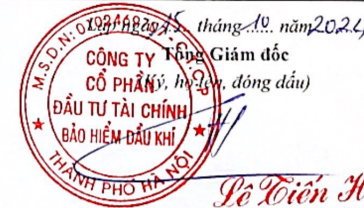 ngày 15 tháng 10 năm 2024
Tổng Giám đốc
(Ký, họ tên, đóng dấu)
M.S.D.N:
C.P
CÔNG TY
CỔ PHẦN
ĐẦU TƯ TÀI CHÍNH
BẢO HIỂM DẦU KHÍ
THÀNH PHỐ HÀ NỘI
Lê Tiến